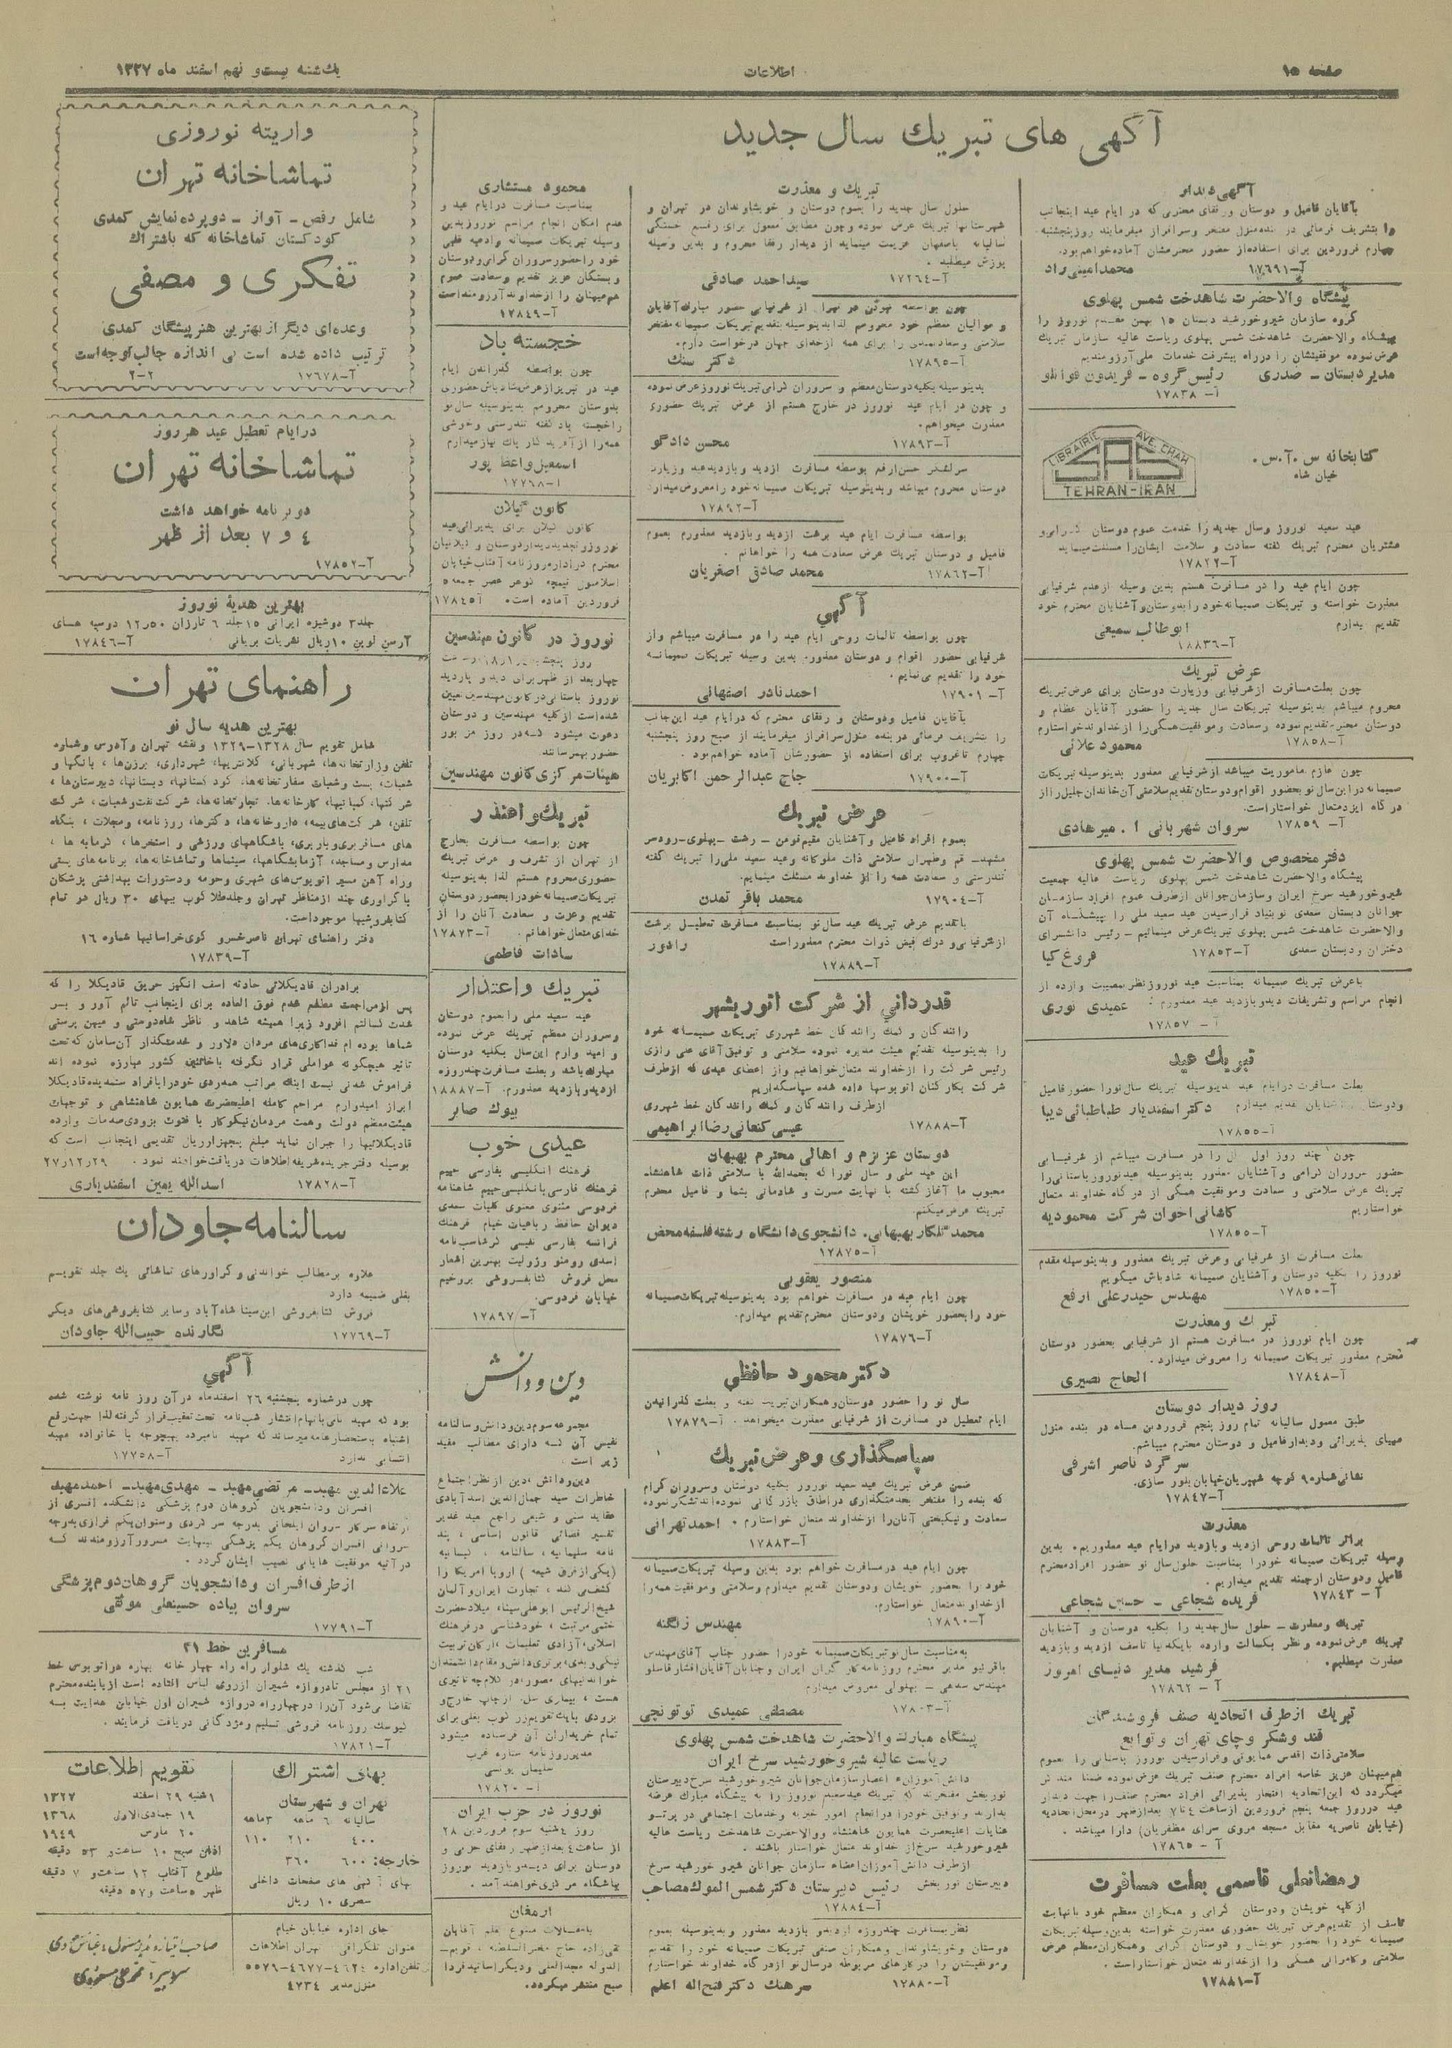 صفحه ۱۵
اطلاعات
یک‌شنبه بیست و نهم اسفند ماه ۱۳۲۷
آگهی های تبریك سال جدید
آگهی دیدار
بآقایان فامیل و دوستان ورفقای محترمی که در ایام عید اینجانب
را بتشریف فرمائی در بنده منزل مفتخر وسرافراز میفرمایند روز پنجشنبه
چهارم فروردین برای استفاده از حضور محترمشان آماده خواهم بود.
آ-۱۷۶۹۱ محمد امینی راد
پیشگاه والاحضرت شاهدخت شمس پهلوی
گروه سازمان شیروخورشید دبستان ۱۵ بهمن مقدم نوروز را
پیشگاه والاحضرت شاهدخت شمس پهلوی ریاست عالیه سازمان تبریك
عرض نموده موفقیتشان را در راه پیشرفت خدمات ملی آرزومندیم
مدیر دبستان - صدری رئیس گروه - فریدون
آ- ۱۷۸۳۸
LIBRAIRIE AVE. CHAH
SAS
TEHRAN-IRAN
کتابخانه س . آ . س .
خیابان شاه
عید سعید نوروز وسال جدید را خدمت عموم دوستان گرامی و
مشتریان محترم تبریك گفته سعادت و سلامت ایشان را مسئلت مینماید
آ-۱۷۸۲۲
چون ایام عید را در مسافرت هستم بدین وسیله از عدم شرفیابی
معذرت خواسته و تبریکات صمیمانه خود را بدوستان وآشنایان محترم خود
تقدیم میدارم ابوطالب سمیعی
آ-۱۸۸۳۶
عرض تبریك
چون بعلت مسافرت از شرفیابی وزیارت دوستان برای عرض تبریك
محروم میباشم بدینوسیله تبریکات سال جدید را حضور آقایان عظام و
دوستان محترم تقدیم نموده وسعادت و موفقیت همگی را از خداوند خواستارم
آ-۱۷۸۵۸ محمود علائی
چون عازم ماموریت میباشد از شرفیابی معذور بدینوسیله تبریکات
صمیمانه در این سال نو بحضور اقوام ودوستان تقدیم سلامتی آن خاندان جلیل را از
درگاه ایزد متعال خواستار است.
آ- ۱۷۸۵۹ سروان شهربانی ا . میرهادی
دفتر مخصوص والاحضرت شمس پهلوی
پیشگاه والاحضرت شاهدخت شمس پهلوی ریاست عالیه جمعیت
شیروخورشید سرخ ایران وسازمان جوانان از طرف عموم افراد سازمان
جوانان دبستان سعدی نوبنیاد فرارسیدن عید سعید ملی را پیشگاه آن
والاحضرت شاهدخت شمس پهلوی تبریك عرض مینمائیم - رئیس دانشسرای
دختران ودبستان سعدی آ-۱۷۸۵۳ فروغ کیا
باعرض تبریك صمیمانه بمناسبت عید نوروز نظر بمصیبت وارده از
انجام مراسم وتشریفات دیدوبازدید عید معذورم . عمیدی نوری
آ - ۱۷۸۵۷
تبریك عید
بعلت مسافرت در ایام عید بدینوسیله تبریك سال نو را حضور فامیل
ودوستان آشنایان تقدیم میدارم دکتر اسفندیار طباطبائی دیبا
آ-۱۷۸۵۵
چون چند روز اول سال را در مسافرت میباشم از شرفیابی
حضور سروران گرامی و آشنایان معذور بدینوسیله عید نوروز باستانی را
تبریك عرض سلامتی و سعادت وموفقیت همگی از درگاه خداوند متعال
خواستاریم کاشانی اخوان شرکت محمودیه
آ-۱۷۸۵۵
بعلت مسافرت از شرفیابی وعرض تبریك معذور و بدینوسیله مقدم
نوروز را بکلیه دوستان وآشنایان صمیمانه شادباش میگویم
آ-۱۷۸۵۰ مهندس حیدرعلی ارفع
تبریك ومعذرت
چون ایام نوروز در مسافرت هستم از شرفیابی بحضور دوستان
محترم معذور تبریکات صمیمانه را معروض میدارد.
آ-۱۷۸۴۸ الحاج نصیری
روز دیدار دوستان
طبق معمول سالیانه تمام روز پنجم فروردین ماه در بنده منزل
مهیای پذیرائی ودیدار فامیل و دوستان محترم میباشم.
سرگرد ناصر اشرفی
نشانی شماره ۹ کوچه شهپریان خیابان بلور سازی.
آ-۱۷۸۴۷
معذرت
براثر تالمات روحی از دید و بازدید در ایام عید معذوریم. بدین
وسیله تبریکات صمیمانه خود را بمناسبت حلول سال نو حضور افراد محترم
فامیل ودوستان ارجمند تقدیم میداریم.
آ - ۱۷۸۴۳ فریده شجاعی - حسین شجاعی
تبریك ومعذرت - حلول سال جدید را بکلیه دوستان و آشنایان
تبریك عرض نموده و نظر بکسالت وارده با یکدنیا تاسف از دید و بازدید
معذرت میطلبم. فرشید مدیر دنیای امروز
آ - ۱۷۸۶۲
تبریك از طرف اتحادیه صنف فروشندگان
قند وشکر وچای تهران و توابع
سلامتی ذات اقدس همایونی و فرارسیدن نوروز باستانی را بعموم
هم میهنان عزیز خاصه افراد محترم صنف تبریك عرض نموده ضمنا متذکر
میگردد که این اتحادیه افتخار پذیرائی افراد محترم صنف را جهت دیدار
عید در روز جمعه پنجم فروردین از ساعت ۴ تا ۷ بعد از ظهر در محل اتحادیه
(خیابان ناصریه مقابل مسجد مروی سرای مظفریان) دارا میباشد.
آ - ۱۷۸۶۵
رمضانعلی قاسمی بعلت مسافرت
از کلیه خویشان ودوستان گرامی و همکاران معظم خود با نهایت
تاسف از تقدیم عرض تبریك حضوری معذرت خواسته بدین وسیله تبریکات
صمیمانه خود را بحضور خویشان و دوستان گرامی وهمکاران معظم عرض
سلامتی وکامرانی همگی را از خداوند متعال خواستار است.
آ-۱۷۸۸۱
تبریك و معذرت
حلول سال جدید را بعموم دوستان و خویشاوندان در تهران و
شهرستانها تبریك عرض نموده وچون مطابق معمول برای رفع خستگی
سالیانه باصفهان عزیمت مینماید از دیدار رفقا محروم و بدین وسیله
پوزش میطلبد .
آ-۱۷۲۶۴ سیداحمد صادقی
چون بواسطه نبودن در تهران از شرفیابی حضور مبارك آقایان
و موالیان معظم خود محرومم لذا بدینوسیله بتقدیم تبریکات صمیمانه مفتخر
سلامتی وسعادتمندی را برای همه از خدای جهان درخواست دارم.
آ-۱۷۸۹۵ دکتر سنك
بدینوسیله بکلیه دوستان معظم و سروران گرامی تبریك نوروز عرض نموده
و چون در ایام عید نوروز در خارج هستم از عرض تبریك حضوری
معذرت میخواهم.
آ-۱۷۸۹۳ محسن دادگو
سرلشکر حسن ارفع بواسطه مسافرت از دید و بازدید عید وزیارت
دوستان محروم میباشد وبدینوسیله تبریکات صمیمانه خود را معروض میدارد
آ-۱۷۸۹۲
بواسطه مسافرت ایام عید برشت از دید وبازدید معذورم بعموم
فامیل و دوستان تبریك عرض سعادت همه را خواهانم .
آ-۱۷۸۶۲ محمد صادق اصغریان
آگهی
چون بواسطه تالمات روحی ایام عید را در مسافرت میباشم واز
شرفیابی حضور اقوام و دوستان معذورم بدین وسیله تبریکات صمیمانه
خود را تقدیم می نمایم.
آ- ۱۷۹۰۱ احمد نادر اصفهانی
بآقایان فامیل ودوستان و رفقای محترم که در ایام عید این جانب
را بتشریف فرمائی در بنده منزل سرافراز میفرمایند از صبح روز پنجشنبه
چهارم تا غروب برای استفاده از حضورشان آماده خواهم بود.
آ-۱۷۹۰۰ حاج عبدالرحمن اکابریان
عرض تبریك
بعموم افراد فامیل وآشنایان مقیم فومن - رشت - پهلوی - رودسر
مشهد - قم وطهران سلامتی ذات ملوکانه وعید سعید ملی را تبریك گفته
تندرستی و سعادت همه را از خداوند مسئلت مینمایم.
آ-۱۷۹۰۴ محمد باقر تمدن
باتقدیم عرض تبریك عید سال نو بمناسبت مسافرت تعطیل برشت
از شرفیابی ودرك فیض ذوات محترم معذور است رادور
آ-۱۷۸۸۹
قدردانی از شرکت اتوریشهر
رانندگان و کمك رانندگان خط شهرری تبریکات صمیمانه خود
را بدینوسیله تقدیم هیئت مدیره نموده سلامتی و توفیق آقای علی رازی
رئیس شرکت را از خداوند متعال خواهانیم واز اعضای عیدی که از طرف
شرکت بکارکنان اتوبوسها داده شده سپاسگذاریم
از طرف رانندگان و کمك رانندگان خط شهرری
آ-۱۷۸۸۸ عیسی کنعانی رضا ابراهیمی
دوستان عزیزم و اهالی محترم بهبهان
این عید ملی و سال نو را که بحمدالله با سلامتی ذات شاهنشاه
محبوب ما آغاز گشته با نهایت مسرت و شادمانی بشما و فامیل محترم
تبریك عرض میکنم
محمد گلکار بهبهانی. دانشجوی دانشگاه رشته فلسفه محض
آ-۱۷۸۷۵
منصور یعقوبی
چون ایام عید در مسافرت خواهم بود بدینوسیله تبریکات صمیمانه
خود را بحضور خویشان ودوستان محترم تقدیم میدارم.
آ-۱۷۸۷۶
دکتر محمود حافظی
سال نو را حضور دوستان وهمکاران تبریك گفته و بعلت گذرانیدن
ایام تعطیل در مسافرت از شرفیابی معذرت میخواهد . آ-۱۷۸۷۹
سپاسگذاری وعرض تبریك
ضمن عرض تبریك عید سعید نوروز بکلیه دوستان وسروران گرام
که بنده را مفتخر بخدمتگذاری در اطاق بازرگانی نموده اند تشکر نموده
سعادت و نیکبختی آنان را از خداوند متعال خواستارم . احمد تهرانی
آ-۱۷۸۸۳
چون ایام عید در مسافرت خواهم بود بدین وسیله تبریکات صمیمانه
خود را بحضور خویشان ودوستان تقدیم میدارم وسلامتی وموفقیت همه را
از خداوند متعال خواستارم.
آ-۱۷۸۹۰ مهندس زنگنه
به مناسبت سال نو تبریکات صمیمانه خود را حضور جناب آقای مهندس
باقرنیو مدیر محترم روزنامه کارگران ایران و جنابان آقایان افشار قاسملو
مهندس سدهی - بهلولی معروض میدارم
آ-۱۷۸۰۳ مصطفی عمیدی توتونچی
پیشگاه مبارك والاحضرت شاهدخت شمس پهلوی
ریاست عالیه شیروخورشید سرخ ایران
دانش آموزان اعضاء سازمان جوانان شیروخورشید سرخ دبیرستان
نوربخش مفتخرند که تبریك عید سعید نوروز را به پیشگاه مبارك عرضه
بدارند وتوفیق خود را در انجام امور خیریه وخدمات اجتماعی در پرتو
عنایات اعلیحضرت همایون شاهنشاه ووالاحضرت شاهدخت ریاست عالیه
شیروخورشید سرخ از خداوند متعال خواستار باشند .
از طرف دانش آموزان اعضاء سازمان جوانان شیر و خورشید سرخ
دبیرستان نوربخش رئیس دبیرستان دکتر شمس الملوك مصاحب
آ-۱۷۸۸۴
نظر بمسافرت چند روزه از دید و بازدید معذور وبدینوسیله بعموم
دوستان وخویشاوندان وهمکاران صنفی تبریکات صمیمانه خود را تقدیم
وموفقیتشان را در کارهای مربوطه در سال نو از درگاه خداوند خواستارم
آ-۱۷۸۸۰ سرهنك دکتر فتح اله اعلم
محمود مستشاری
بمناسبت مسافرت در ایام عید و
عدم امکان انجام مراسم نوروز بدین
وسیله تبریکات صمیمانه وادعیه قلبی
خود را حضور سروران گرامی ودوستان
وبستگان عزیز تقدیم وسعادت عموم
هم میهنان را از خداوند آرزومند است
آ-۱۷۸۴۹
خجسته باد
چون بواسطه گذراندن ایام
عید در تبریز از عرض شادباش حضوری
بدوستان محرومم بدینوسیله سال نو
را خجسته باد گفته تندرستی وخوشی
همه را از آفریدگار یك نیاز میدارم
اسمعیل واعظ پور
آ-۱۷۷۶۸
کانون گیلان
کانون گیلان برای پذیرائی عید
نوروز وتجدید دیدار دوستان و گیلانیان
محترم در اداره روزنامه آفتاب خیابان
اسلامبول نیمچه نوعر عصر جمعه ۵
فروردین آماده است. آ-۱۷۸۴۵
نوروز در کانون مهندسین
روز پنجشنبه
چهار بعد از ظهر برای دید و بازدید
نوروز باستانی در کانون مهندسین تعیین
شده است از کلیه مهندسین و دوستان
دعوت میشود که در روز مزبور
حضور بهم رسانند.
هیئت مرکزی کانون مهندسین
تبریك واعتذار
چون بواسطه مسافرت بخارج
از تهران از تشرف و عرض تبریك
حضوری محروم هستم لذا بدینوسیله
تبریکات صمیمانه خود را بحضور دوستان
تقدیم وعزت و سعادت آنان را از
خدای متعال خواهانم. آ-۱۷۸۷۳
سادات فاطمی
تبریك واعتذار
عید سعید ملی را بعموم دوستان
وسروران معظم تبریك عرض نموده
و امید وارم این سال بکلیه دوستان
مبارك باشد و بعلت مسافرت چند روزه
از دید وبازدید معذورم. آ-۱۸۸۸۷
بیوك صابر
عیدی خوب
فرهنك انگلیسی بفارسی حییم
فرهنك فارسی بانگلیسی حییم شاهنامه
فردوسی مثنوی معنوی کلیات سعدی
دیوان حافظ رباعیات خیام فرهنك
فرانسه بفارسی نفیسی گرشاسب نامه
اسدی رومئو وژولیت بهترین اشعار
محل فروش کتابفروشی بروخیم
خیابان فردوسی.
آ-۱۷۸۹۷
دین و دانش
مجموعه سوم دین ودانش وسالنامه
نفیس آن که دارای مطالب مفید
زیر است .
دین ودانش ، دین از نظر اجتماع
خاطرات سید جمال الدین اسدآبادی
عقاید سنی و شیعی راجع بعید غدیر
تفسیر قضائی قانون اساسی ، پند
نامه سلیمانیه ، سالنامه ،
(یکی از فرق شیعه) اروپا امریکا را
کشف می کند ، تجارت ایران و آلمان
شیخ الرئیس ابوعلی سینا ، میلاد حضرت
ختمی مرتبت ، خودشناسی در فرهنك
اسلامی آزادی تعلیمات ، ارکان تربیت
نیکی وبدی ، برتری دانش ومقام دانشمندان
خواندنیهای مصور
هست ، بیماری سل. از چاپ خارج و
بزودی با یك تقویم زر کوب بغلی برای
تمام خریداران آن فرستاده میشود
مدیر روزنامه ستاره غرب
سلیمان یونسی
آ- ۱۷۸۲۰
نوروز در حزب ایران
روز ۴ شنبه سوم فروردین ۲۸
از ساعت ۴ بعد از ظهر رفقای حزبی و
دوستان برای دید و بازدید نوروز
بباشگاه مرکزی خواهند آمد .
ارمغان
با مقالات متنوع بقلم آقایان
تقی زاده حاج مخبرالسلطنه ، قویم-
الدوله مجدالعلی ودیگر اساتید فردا
صبح منتشر میگردد.
واریته نوروزی
تماشاخانه تهران
شامل رقص - آواز - دوپرده نمایش کمدی
کودکستان تماشاخانه که باشتراك
تفکری و مصفی
وعده‌ای دیگر از بهترین هنرپیشگان کمدی
ترتیب داده شده است بی اندازه جالب توجه است
آ-۱۷۶۷۸ ۲-۲
در ایام تعطیل عید هر روز
تماشاخانه تهران
دو برنامه خواهد داشت
۴ و ۷ بعد از ظهر
آ-۱۷۸۵۲
بهترین هدیهٔ نوروز
جلد ۳ دوشیزه ایرانی ۱۵ جلد ۶ تارزان ۱۲۵۰ دوسیه های
آرسن لوپن ۱۰ ریال نشریات بریانی آ-۱۷۸۴۶
راهنمای تهران
بهترین هدیه سال نو
شامل تقویم سال ۱۳۲۸-۱۳۲۹ ونقشه تهران وآدرس وشماره
تلفن وزارتخانه‌ها، شهربانی، کلانتریها، شهرداری، برزن‌ها ، بانکها و
شعبات، پست وشعبات سفارتخانه‌ها، کودکستانها، دبستانها، دبیرستان‌ها ،
شرکتها، کمپانیها، کارخانه‌ها، تجارتخانه‌ها، شرکت نفت وشعبات، شرکت
تلفن، شرکت‌های بیمه، داروخانه‌ها، دکترها، روزنامه، ومجلات ، بنگاه
های مسافربری وباربری، باشگاههای ورزشی و استخرها، گرمابه ها ،
مدارس ومساجد، آزمایشگاهها، سینماها وتماشاخانه‌ها، برنامه‌های پستی
وراه آهن مسیر اتوبوس‌های شهری وحومه ودستورات بهداشتی پزشکان
با گراوری چند از مناظر تهران وجلد طلاکوب ببهای ۳۰ ریال در تمام
کتابفروشیها موجود است.
دفتر راهنمای تهران ناصرخسرو کوی خراسانیها شماره ۱۶
آ-۱۷۸۳۹
برادران قادیکلائی حادثه اسف انگیز حریق قادیکلا را که
پس از مراجعت مطلع شدم فوق العاده برای اینجانب تالم آور و بسر
شدت کسالتم افزود زیرا همیشه شاهد و ناظر شاهدوستی و میهن پرستی
شماها بوده ام فداکاری‌های مردان دلاور و خدمتگذار آن سامان که تحت
تاثیر هیچگونه عواملی قرار نگرفته با خائنین کشور مبارزه نموده اند
فراموش شدنی نیست اینك مراتب همدردی خود را با افراد ستمدیده قادیکلا
ابراز امیدوارم مراحم کامله اعلیحضرت همایون شاهنشاهی و توجهات
هیئت معظم دولت وهمت مردمان نیکوکار با فتوت بزودی صدمات وارده
قادیکلائیها را جبران نماید مبلغ پنجهزار ریال تقدیمی اینجانب است که
بوسیله دفتر جریده شریفه اطلاعات دریافت خواهند نمود . ۲۷/۱۲/۲۹
آ-۱۷۸۲۸ اسدالله یمین اسفندیاری
سالنامه جاودان
علاوه بر مطالب خواندنی و گراورهای تماشائی یك جلد تقویم
بغلی ضمیمه دارد
فروش کتابفروشی ابن سینا شاه آباد وسایر کتابفروشی‌های دیگر
آ-۱۷۷۶۹ نگارنده حبیب الله جاودان
آگهی
چون در شماره پنجشنبه ۲۶ اسفندماه در آن روز نامه نوشته شده
بود که مهبد نامی باتهام انتشار شب نامه تحت تعقیب قرار گرفته لذا جهت رفع
اشتباه باستحضار عامه میرساند که مهبد نامبرده بهیچوجه با خانواده مهبد
انتسابی ندارد آ-۱۷۷۵۸
علاءالدین مهبد - مرتضی مهبد - مهدی مهبد - احمد مهبد
افسران ودانشجویان گروهان دوم پزشکی دانشکده افسری از
ارتقاء سرکار سروان اینجانی بدرجه سرگردی وستوان یکم فرازی بدرجه
سروانی افسران گروهان یکم پزشکی بینهایت مسرور آرزومندند که
در آتیه موفقیت هایائی نصیب ایشان گردد .
از طرف افسران ودانشجویان گروهان دوم پزشکی
سروان پیاده حسینعلی موثقی
آ-۱۷۷۹۱
مسافرین خط ۲۱
شب گذشته یك شلوار راه راه چهار خانه بهاره در اتوبوس خط
۲۱ از مجلس تا دروازه شمیران از روی لباس افتاده است از یابنده محترم
تقاضا می‌شود آن را در چهارراه دروازه شمیران اول خیابان هدایت به
کیوسك روزنامه فروشی تسلیم ومژدگانی دریافت فرمایند .
آ-۱۷۸۲۱
بهای اشتراك
تهران و شهرستان
سالیانه ۶ ماهه ۳ ماهه
۴۰۰ ۲۱۰ ۱۱۰
خارجه: ۶۰۰ ۳۶۰
بهای آگهی های صفحات داخلی
سطری ۱۰ ریال
جای اداره خیابان خیام
عنوان تلگرافی : تهران اطلاعات
تلفن اداره : ۴۶۲-۴۶۷۷-۵۵۷۹
منزل مدیر ۴۷۳۴
تقویم اطلاعات
۱شنبه ۲۹ اسفند ۱۳۲۷
۱۹ جمادی الاول ۱۳۶۸
۲۰ مارس ۱۹۴۹
اذان صبح ۱۰ ساعت و ۵۳ دقیقه
طلوع آفتاب ۱۲ ساعت و ۷ دقیقه
ظهر ۵ ساعت و ۵۷ دقیقه
صاحب امتیاز و مدیر مسئول : عباس مسعودی
سردبیر: محمد علی مسعودی